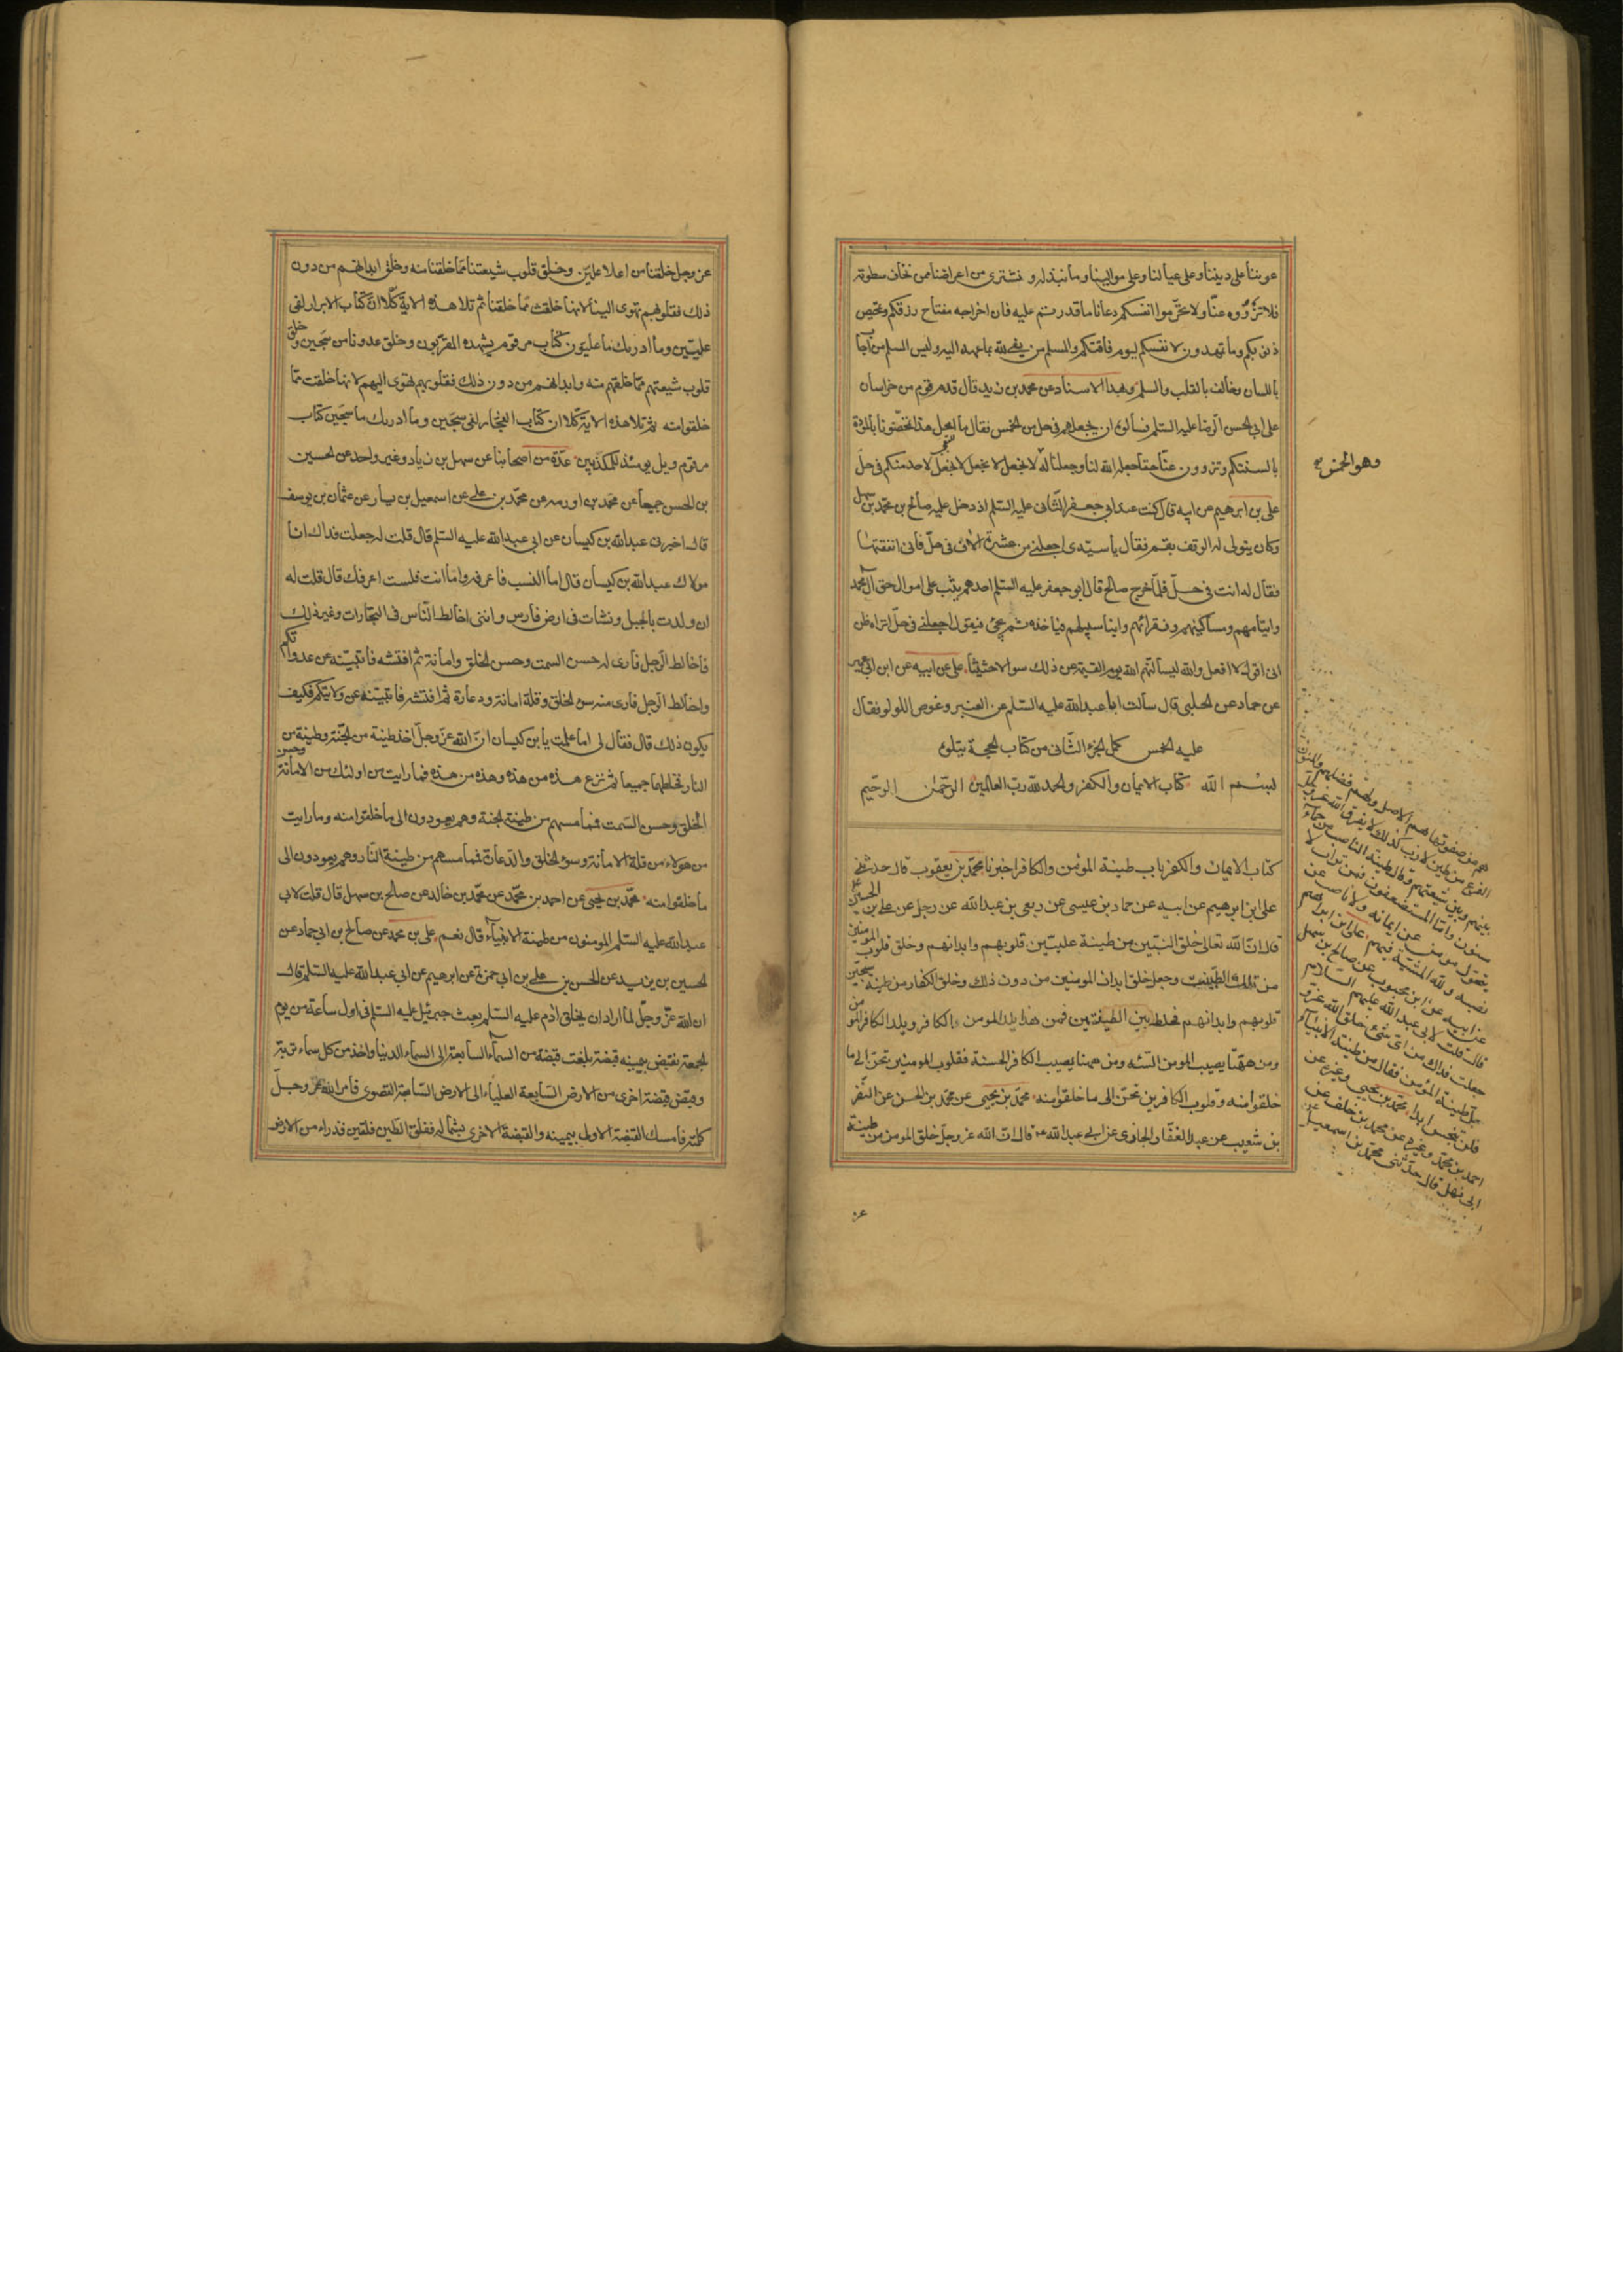 عوننا على ديننا وعلى عيالنا وعلى موالينا وما نبذله ونشترى من اعراضنا ممن نخاف سطوته
فلا تزووه عنّا ولا تحرّموا انفسكم دعانا ما قدرتم عليه فان اخراجه مفتاح رزقكم وتمحيص
ذنوبكم وما تمهدون لانفسكم ليوم فاقتكم والمسلم من يفى لله بما عهد اليه وليس المسلم من اجاب
باللسان وخالف بالقلب والسلم وبهذا الاسناد عن محمد بن زيد قال قدم قوم من خراسان
على ابى الحسن الرضا عليه السّلم فسألوه ان يجعلهم فى حل من الخمس فقال ما امحل هذا تمحضونا بالمودّة
بالسنتكم وتزوون عنّا حقا جعله الله لنا وجعلنا له لا نجعل لا نجعل لا نجعل لاحد منكم فى حلّ
وهو الخمس
على بن ابرهيم عن ابيه قال كنت عند ابى جعفر الثّانى عليه السّلم اذ دخل عليه صالح بن محمّد بن سهل
وكان يتولى له الوقف بقم فقال يا سيّدى اجعلنى من عشرة الاف فى حلّ فانى انفقتها
فقال له انت فى حلّ فلمّا خرج صالح قال ابو جعفر عليه السّلم احدهم يثب على اموال حق آل محمد
وايتامهم ومساكينهم وفقرائهم وابناء سبيلهم فياخذه ثم يجئ فيقول اجعلنى فى حلّ اتراه ظن
انى اقول لا افعل والله ليسألنهم الله يوم القيمة عن ذلك سوالا حثيثا على عن ابيه عن ابن ابى عمير
عن حماد عن الحلبى قال سألت ابا عبدالله عليه السّلم عن العنبر وغوص اللولو فقال
عليه الخمس كمل الجزء الثّانى من كتاب الحجة يتلوه
بسم الله كتاب الايمان والكفر والحمد لله ربّ العالمين الرّحمن الرّحيم
كتاب الايمان والكفر باب طينة المؤمن والكافر اخبرنا محمّد بن يعقوب قال حدثنى
على ابن ابرهيم عن ابيه عن حماد بن عيسى عن ربعى بن عبدالله عن رجل عن على بن الحسين
قال انّ الله تعالى خلق النبيّين من طينة علييّن قلوبهم وابدانهم وخلق قلوب المومنين
من تلك الطّينة وجعل خلق ابدان المومنين من دون ذلك وخلق الكفار من طينة سجيّن
قلوبهم وابدانهم فخلط بين الطينتين فمن هذا يلد المومن الكافر ويلد الكافر المومن
ومن ههنا يصيب المومن السّئه ومن ههنا يصيب الكافر الحسنة فقلوب المومنين تحنّ الى ما
خلقوا منه وقلوب الكافرين تحنّ الى ما خلقوا منه محمّد بن يحيى عن محمّد بن الحسن عن النّضر
بن شعيب عن عبد الغفّار الجازى عن ابى عبدالله ع قال انّ الله عز وجل خلق المومن من طينة
هم من صفوتها هم الاصل ولهم فضلهم والمؤمنون
الفرع من طين لازب كذلك لا يفرق الله عز وجل
بينهم وبين شيعتهم وقال طينة الناصب من حماء
مسنون وامّا المستضعفون فمن تراب لا
يتحول مومن عن ايمانه ولا ناصب عن
نصبه ولله المشيّة فيهم على ابن ابراهيم
عن ابيه عن ابن محبوب عن صالح بن سهل
قال قلت لابى عبدالله عليهم السّلام
جعلت فداك من اى شئ خلق الله عز و
جل طينة المؤمن فقال من طينة الانبياء
فلن تنجس ابدا محمّد بن يحيى وغيره عن
احمد بن محمّد وغيره عن محمد بن خلف عن
ابى نهشل قال حدّثنى محمّد بن اسمعيل
عز وجل خلقنا من اعلا علييّن وخلق قلوب شيعتنا ممّا خلقنا منه وخلق ابدانهم من دون
ذلك فقلوبهم تهوى الينا لانها خلقت ممّا خلقنا ثم تلا هذه الاية كلّا انّ كتاب الابرار لفى
علييّن وما ادريك ما علييون كتاب مرقوم يشهده المقرّبون وخلق عدونا من سجين وخلق
قلوب شيعتهم ممّا خلقهم منه وابدانهم من دون ذلك فقلوبهم تهوى اليهم لانها خلقت ممّا
خلقوا منه ثم تلا هذه الاية كلا ان كتاب الفجّار لفى سجيّن وما ادريك ما سجيّن كتاب
مرقوم ويل يومئذ للمكذبين عدّة من اصحابنا عن سهل بن زياد وغير واحد عن الحسين
بن الحسن جميعا عن محمّد بن اورمه عن محمّد بن على عن اسمعيل بن يسار عن عثمان بن يوسف
قال اخبرنى عبدالله بن كيسان عن ابى عبدالله عليه السّلم قال قلت له جعلت فداك انا
مولاك عبدالله بن كيسان قال اما النسب فاعرفه وامّا انت فلست اعرفك قال قلت له
انى ولدت بالجبل ونشات فى ارض فارس واننى اخالط النّاس فى التجّارات وغير ذلك
فاخالط الرّجل فارى له حسن السمت وحسن الخلق وامانة ثم افتشه فاتبيّنه عن عداوتكم
واخالط الرّجل فارى منه سوء الخلق وقلة امانة ودعارة ثم افتشه فاتبيّنه عن ولايتكم فكيف
يكون ذلك قال فقال لى اما علمت يا بن كيسان انّ الله عزّ وجلّ اخذ طينة من الجنّة وطينة من
النار فخلطهما جميعا ثم نزع هذه من هذه وهذه من هذه فما رايت من اولئك من الامانة وحسن
الخلق وحسن السّمت فما مسهم من طينة الجنة وهم يعودون الى ما خلقوا منه وما رايت
من هولاء من قلة الامانة وسوء الخلق والدّعارة فما مسهم من طينة النّار وهم يعودون الى
ما خلقوا منه محمّد بن يحيى عن احمد بن محمّد عن محمّد بن خالد عن صالح بن سهل قال قلت لابى
عبدالله عليه السّلم المومنون من طينة الانبياء قال نعم على بن محمد عن صالح بن ابى حماد عن
الحسين بن يزيد عن الحسن بن على بن ابى حمزة عن ابرهيم عن ابى عبدالله عليه السّلم قال
ان الله عزّ وجلّ لما اراد ان يخلق ادم عليه السّلم بعث جبرئيل عليه السّلم فى اول ساعة من يوم
الجمعة فقبض بيمينه قبضة بلغت قبضة من السّماء السابعة الى السماء الدنيا واخذ من كل سماء تربة
وقبض قبضة اخرى من الارض السّابعة العلياء الى الارض السّابعة القصوى فامر الله عز وجلّ
كلمته فامسك القبضة الاولى بيمينه والقبضة الاخرى بشماله ففلق الطين فلقتين فذراء من الارض
عز